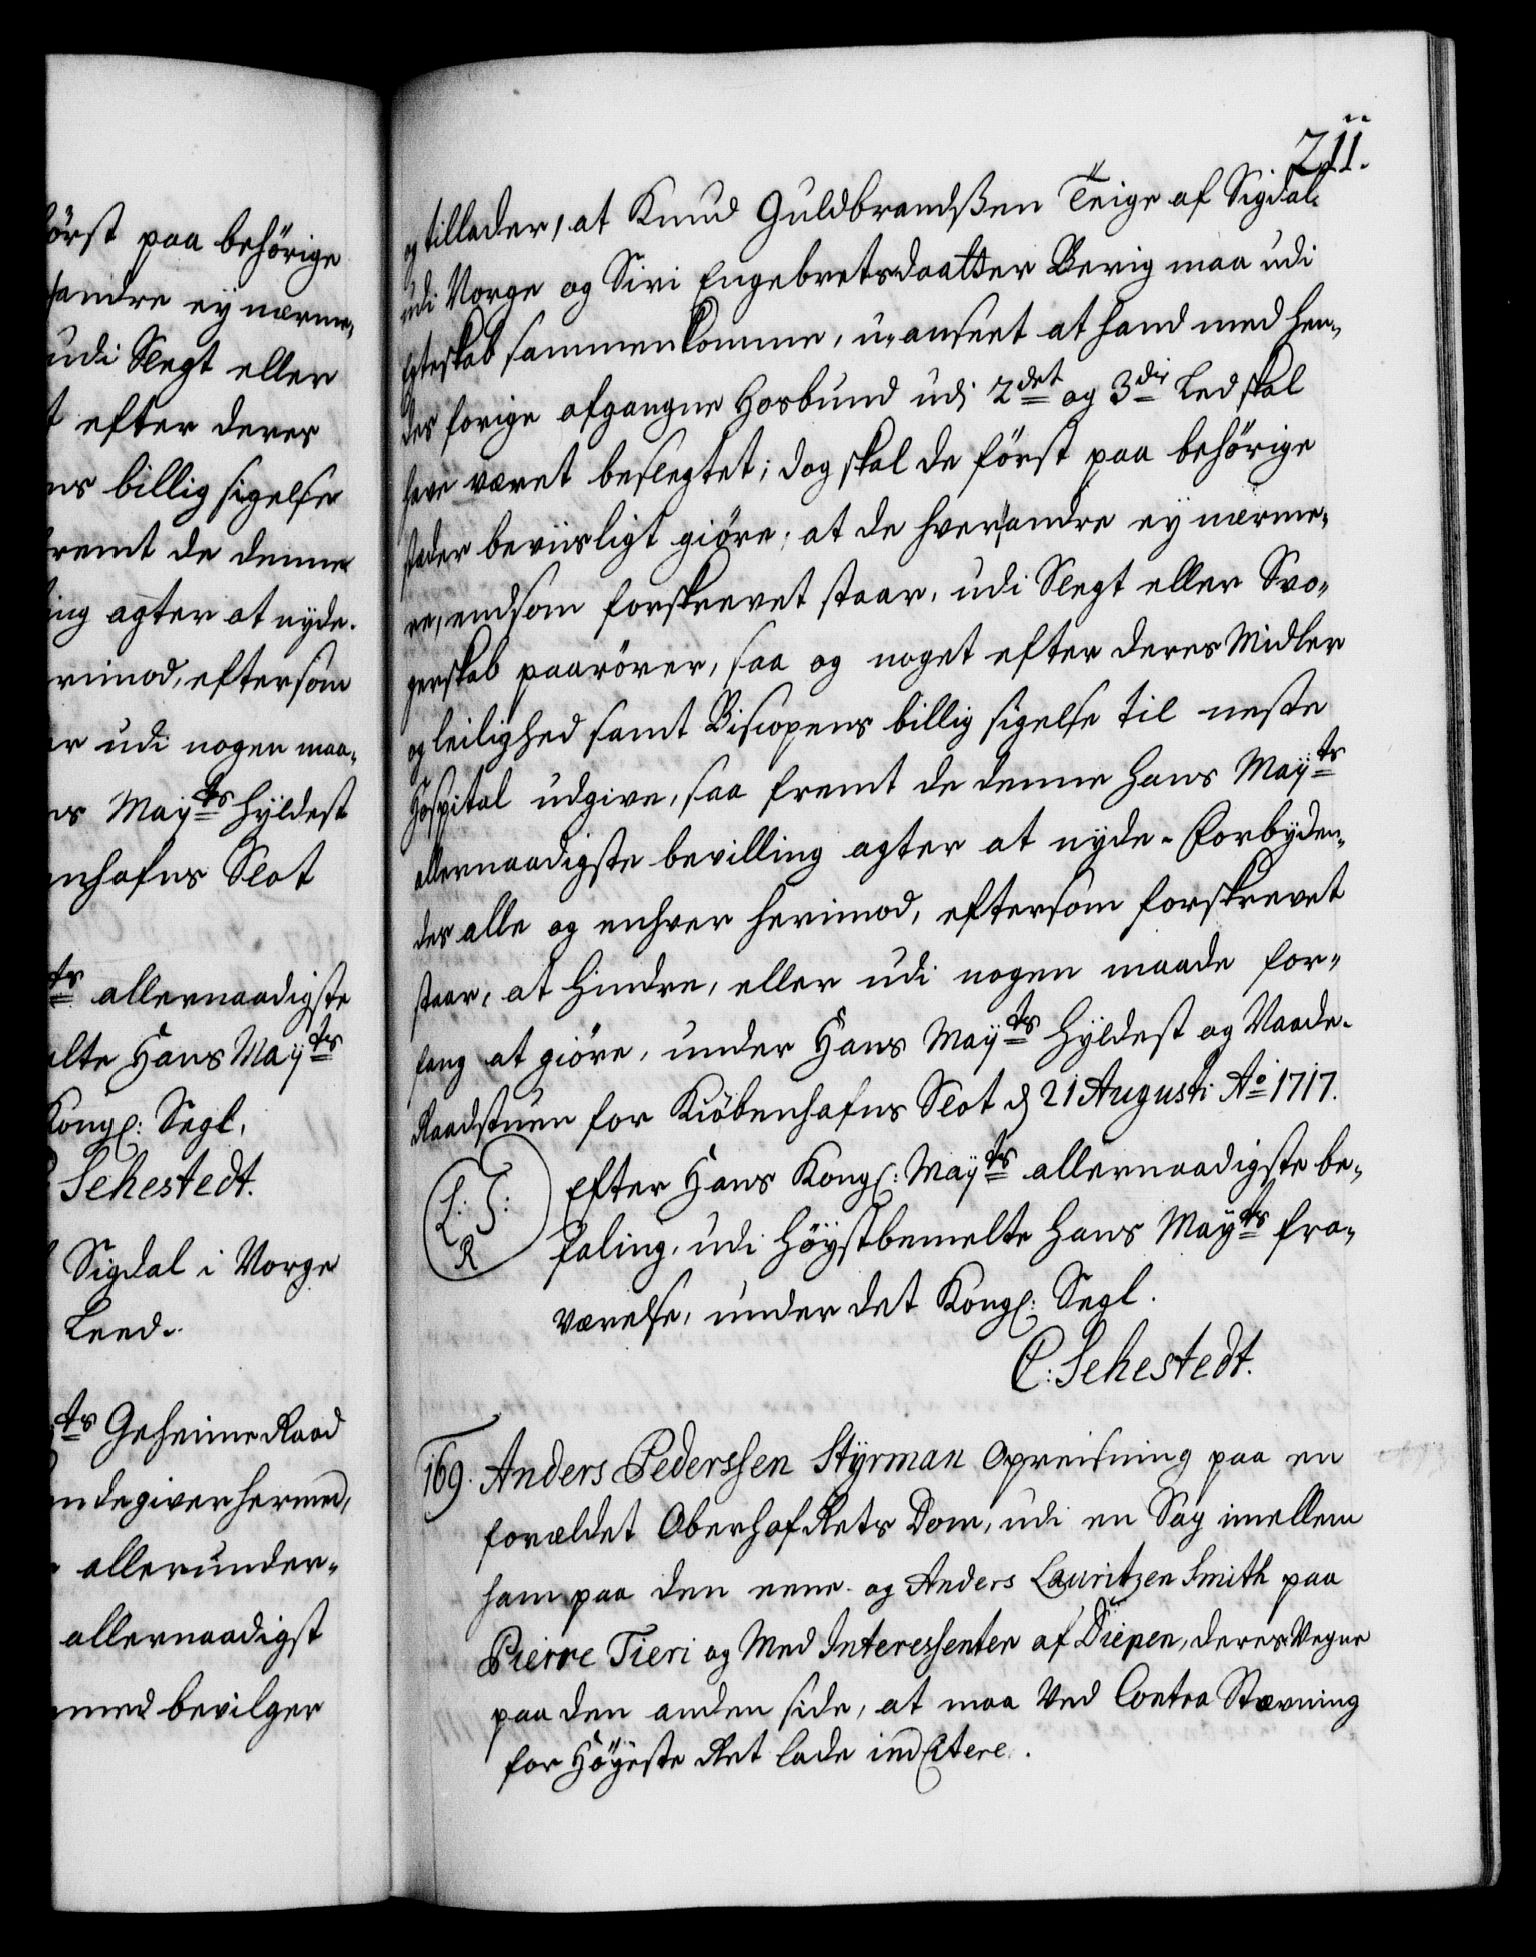 först paa behörige
andre ey nærme-
udi Slegt eller
efter deres
ns billig sigelse
fremt de denne
ing agter at nyde.
rimod, eftersom
er udi nogen maa-
ns Mayts Hyldest
enhafns Slot
ts allernaadigste
elte Hans Mayts
Kongl: Segl.
Sehestedt.
Sigdal i Norge
Leed.
ts Geheime Raad
ndegiver hermed,
allerunder-
allernaadigst
med bevilger
211.
og tillader, at Knud Guldbrandßen Teige af Sigdal
udi Norge og Siri Engebretsdaatter Berig maa udi
Egteskab sammenkomme, u-anseet at hand med hen-
des forige afgangne Hosbund udi 2det og 3die Led skal
have været beslegtet; dog skal de först paa behörige
stæder beviisligt giöre, at de hver andre ey nærme-
re, end som forskrevet staar, udi Slegt eller Svo-
gerskab paarörer, saa og noget efter deres Midler
og leilighed samt Biscopens billig sigelse til neste
Hospital udgive, saa fremt de denne Hans Mayts
allernaadigste bevilling agter at nyde. Forbyden-
des alle og enhver herimod, eftersom forskrevet
staar, at hindre, eller udi nogen maade for-
fang at giöre, under Hans Mayts Hyldest og Naade.
Raadstuen for Kiöbenhafns Slot d 21 Augusti Ao 1717.
L: S:
R
Efter Hans Kongl: Mayts allernaadigste be-
faling, udi Höystbemelte Hans Mayts fra-
værelse, under det Kongl: Segl.
C: Sehestedt.
169. Anders Pederssen Styrman Opreisning paa en
forældet Oberhofrets Dom, udi en Sag imellem
ham paa den eene og Anders Lauritzen Smith paa
Pierre Tieri og Med Interessenter af Diepen, deres Vegne
paa den anden side, at maa ved Contra Stævning
for Höyeste Ret lade ind Citere.